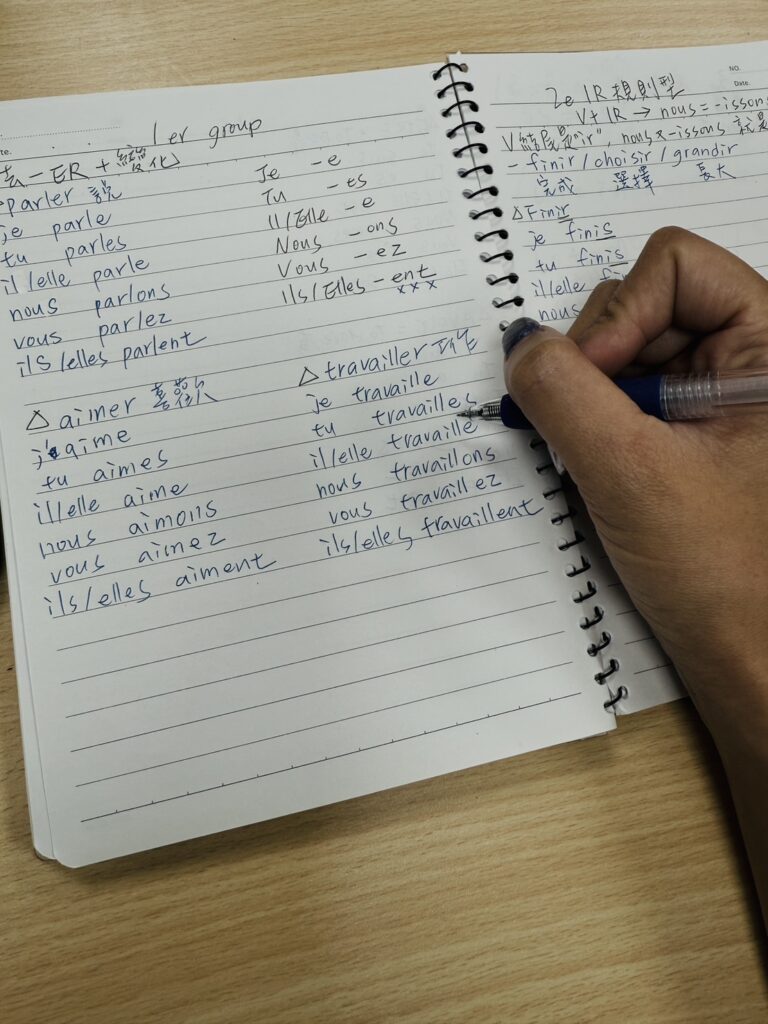 1 er group
去-ER+變化
parler 說
je parle
tu parles
il/elle parle
nous parlons
vous parlez
ils/elles parlent
Je -e
Tu -es
Il/Elle -e
Nous -ons
Vous -ez
Ils/Elles-ent
xxx
△ aimer 喜歡
j'aime
tu aimes
il/elle aime
nous aimons
vous aimez
ils/elles aiment
△ travailler 工作
je travaille
tu travailles
il/elle travaille
nous travaillons
vous travaillez
ils/elles travaillent
NO.
Date.
2e IR 規則型
V+IR → nous = -issons
V結尾是"ir", nous x -issons 就是
- finir/choisir/grandir
完成 選擇 長大
△Finir
je finis
tu finis
il/elle
nous